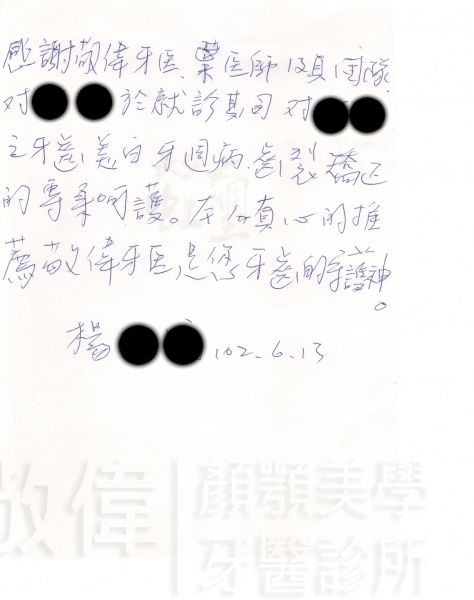 感謝敬偉牙医、葉医師及其团隊
对於就診其间对
之牙齒美白牙週病.齒裂矯正
的專業呵護。在此真心的推
薦敬偉牙医是您牙齒的守護神。
楊 102.6.13
敬偉 顏顎美學
牙醫診所